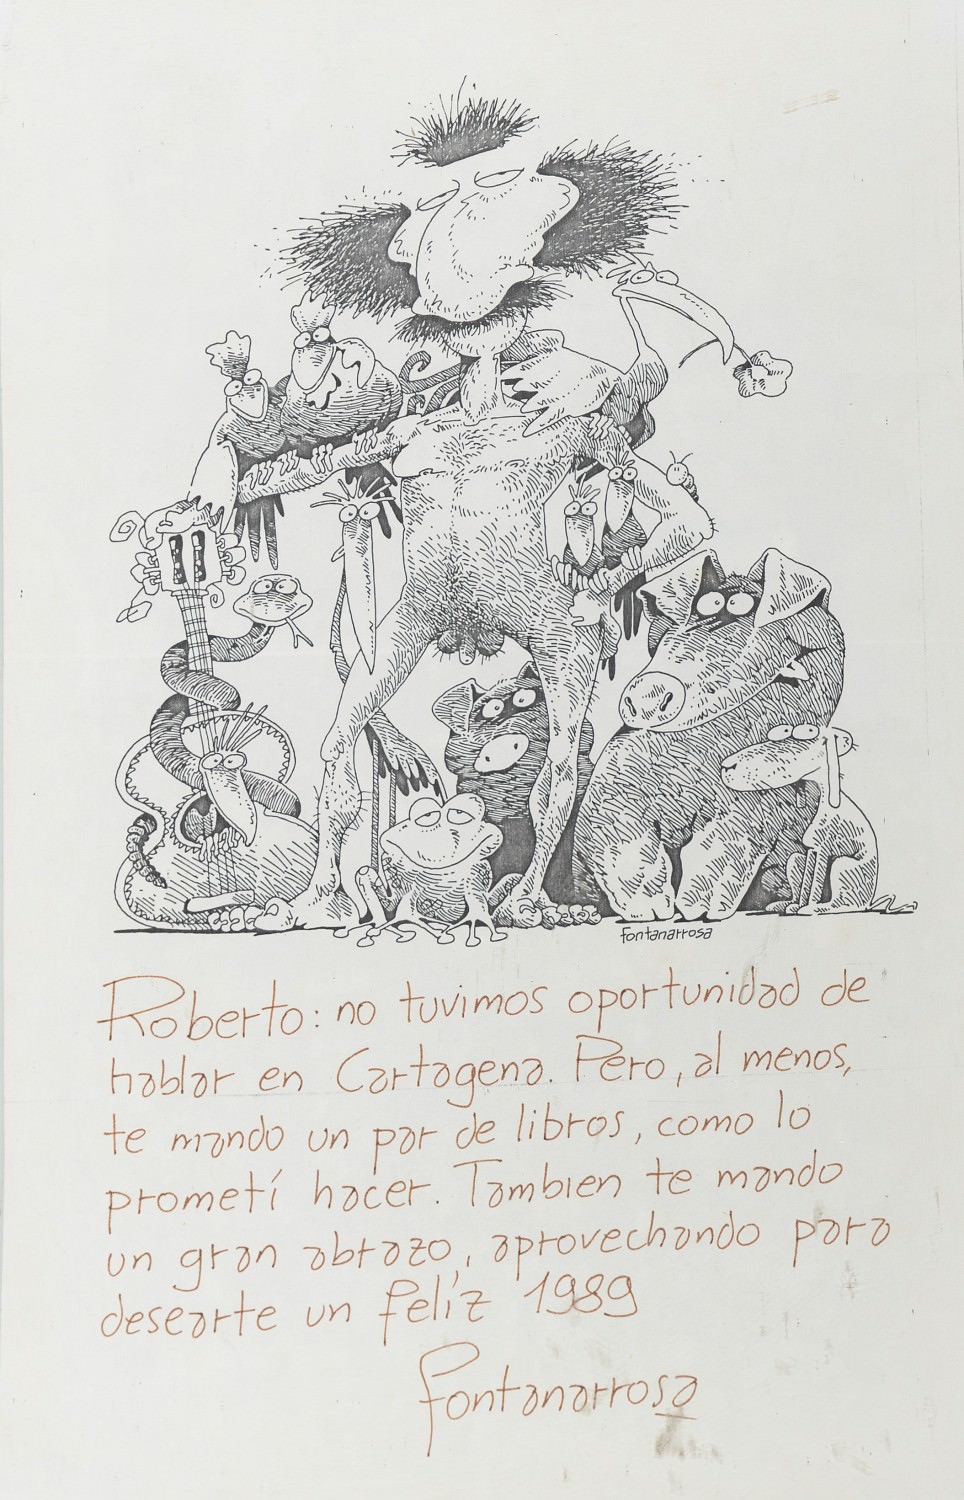 fontanarrosa
Roberto: no tuvimos oportunidad de
hablar en Cartagena. Pero, al menos,
te mando un par de libros, como lo
prometí hacer. Tambien te mando
un gran abrazo, aprovechando para
desearte un felíz 1989
fontanarrosa